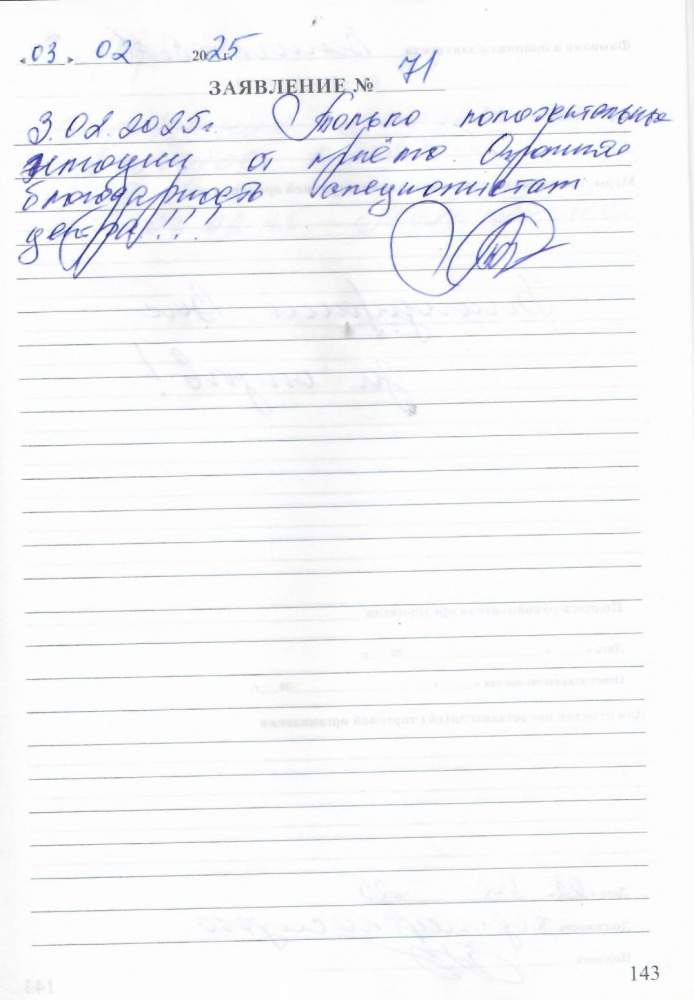 «03» 02 2025 г.
ЗАЯВЛЕНИЕ № 71
3.02.2025г. Только положительные
эмоции от приёма. Огромная
благодарность специалистам
центра!!!
143